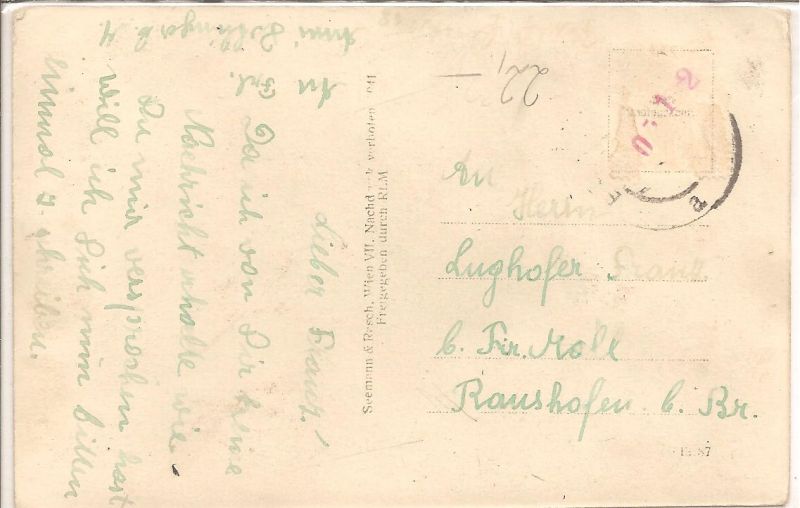 Lieber Franz!
Da ich von Dir keine
Nachricht erhalte wie
Du mir versprochen hast
will ich Dich nun bitten
einmal z. schreiben.
Seemann & Resch, Wien VII. Nachd verboten
Freigegeben durch RLM
22,-
An
Herrn
Lughofer Franz
b. Fir. Moll
Ranshofen b. Br.
87